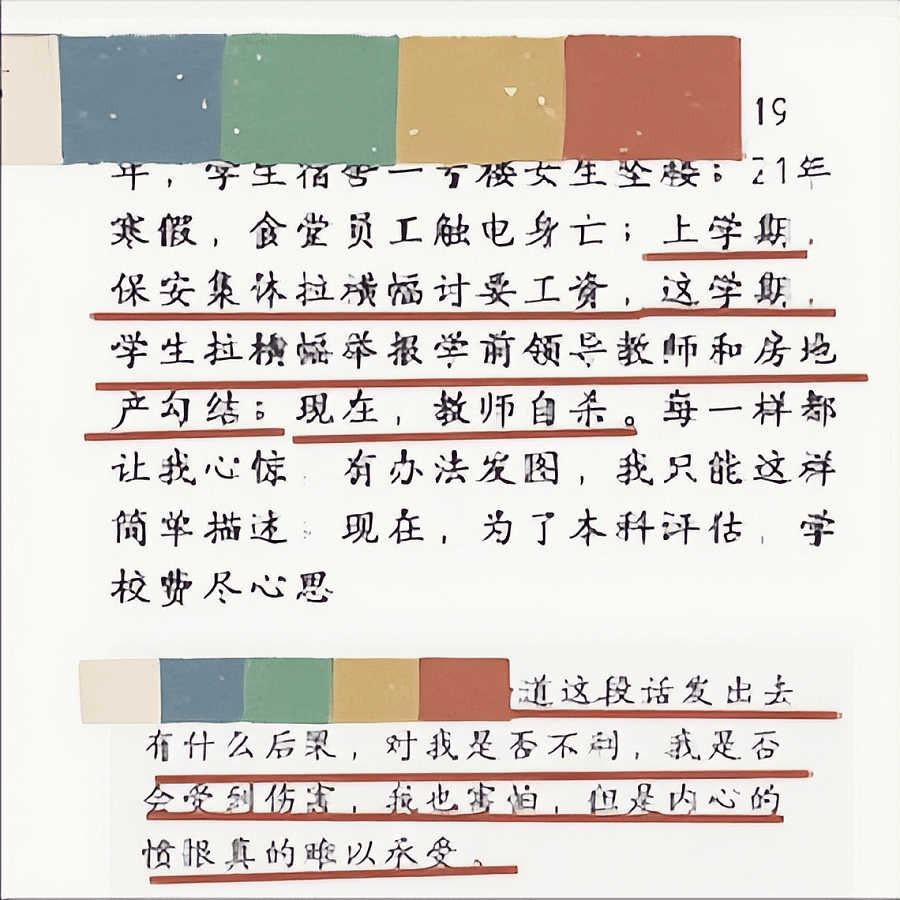 19
年，学生宿舍一号楼女生坠楼；21年
寒假，食堂员工触电身亡；上学期，
保安集体拉横幅讨要工资，这学期，
学生拉横幅举报学前领导教师和房地
产勾结；现在，教师自杀。每一样都
让我心惊 有办法发图，我只能这样
简单描述。现在，为了本科评估，学
校费尽心思
道这段话发出去
有什么后果，对我是否不利，我是否
会受到伤害，我也害怕，但是内心的
愤恨真的难以承受。